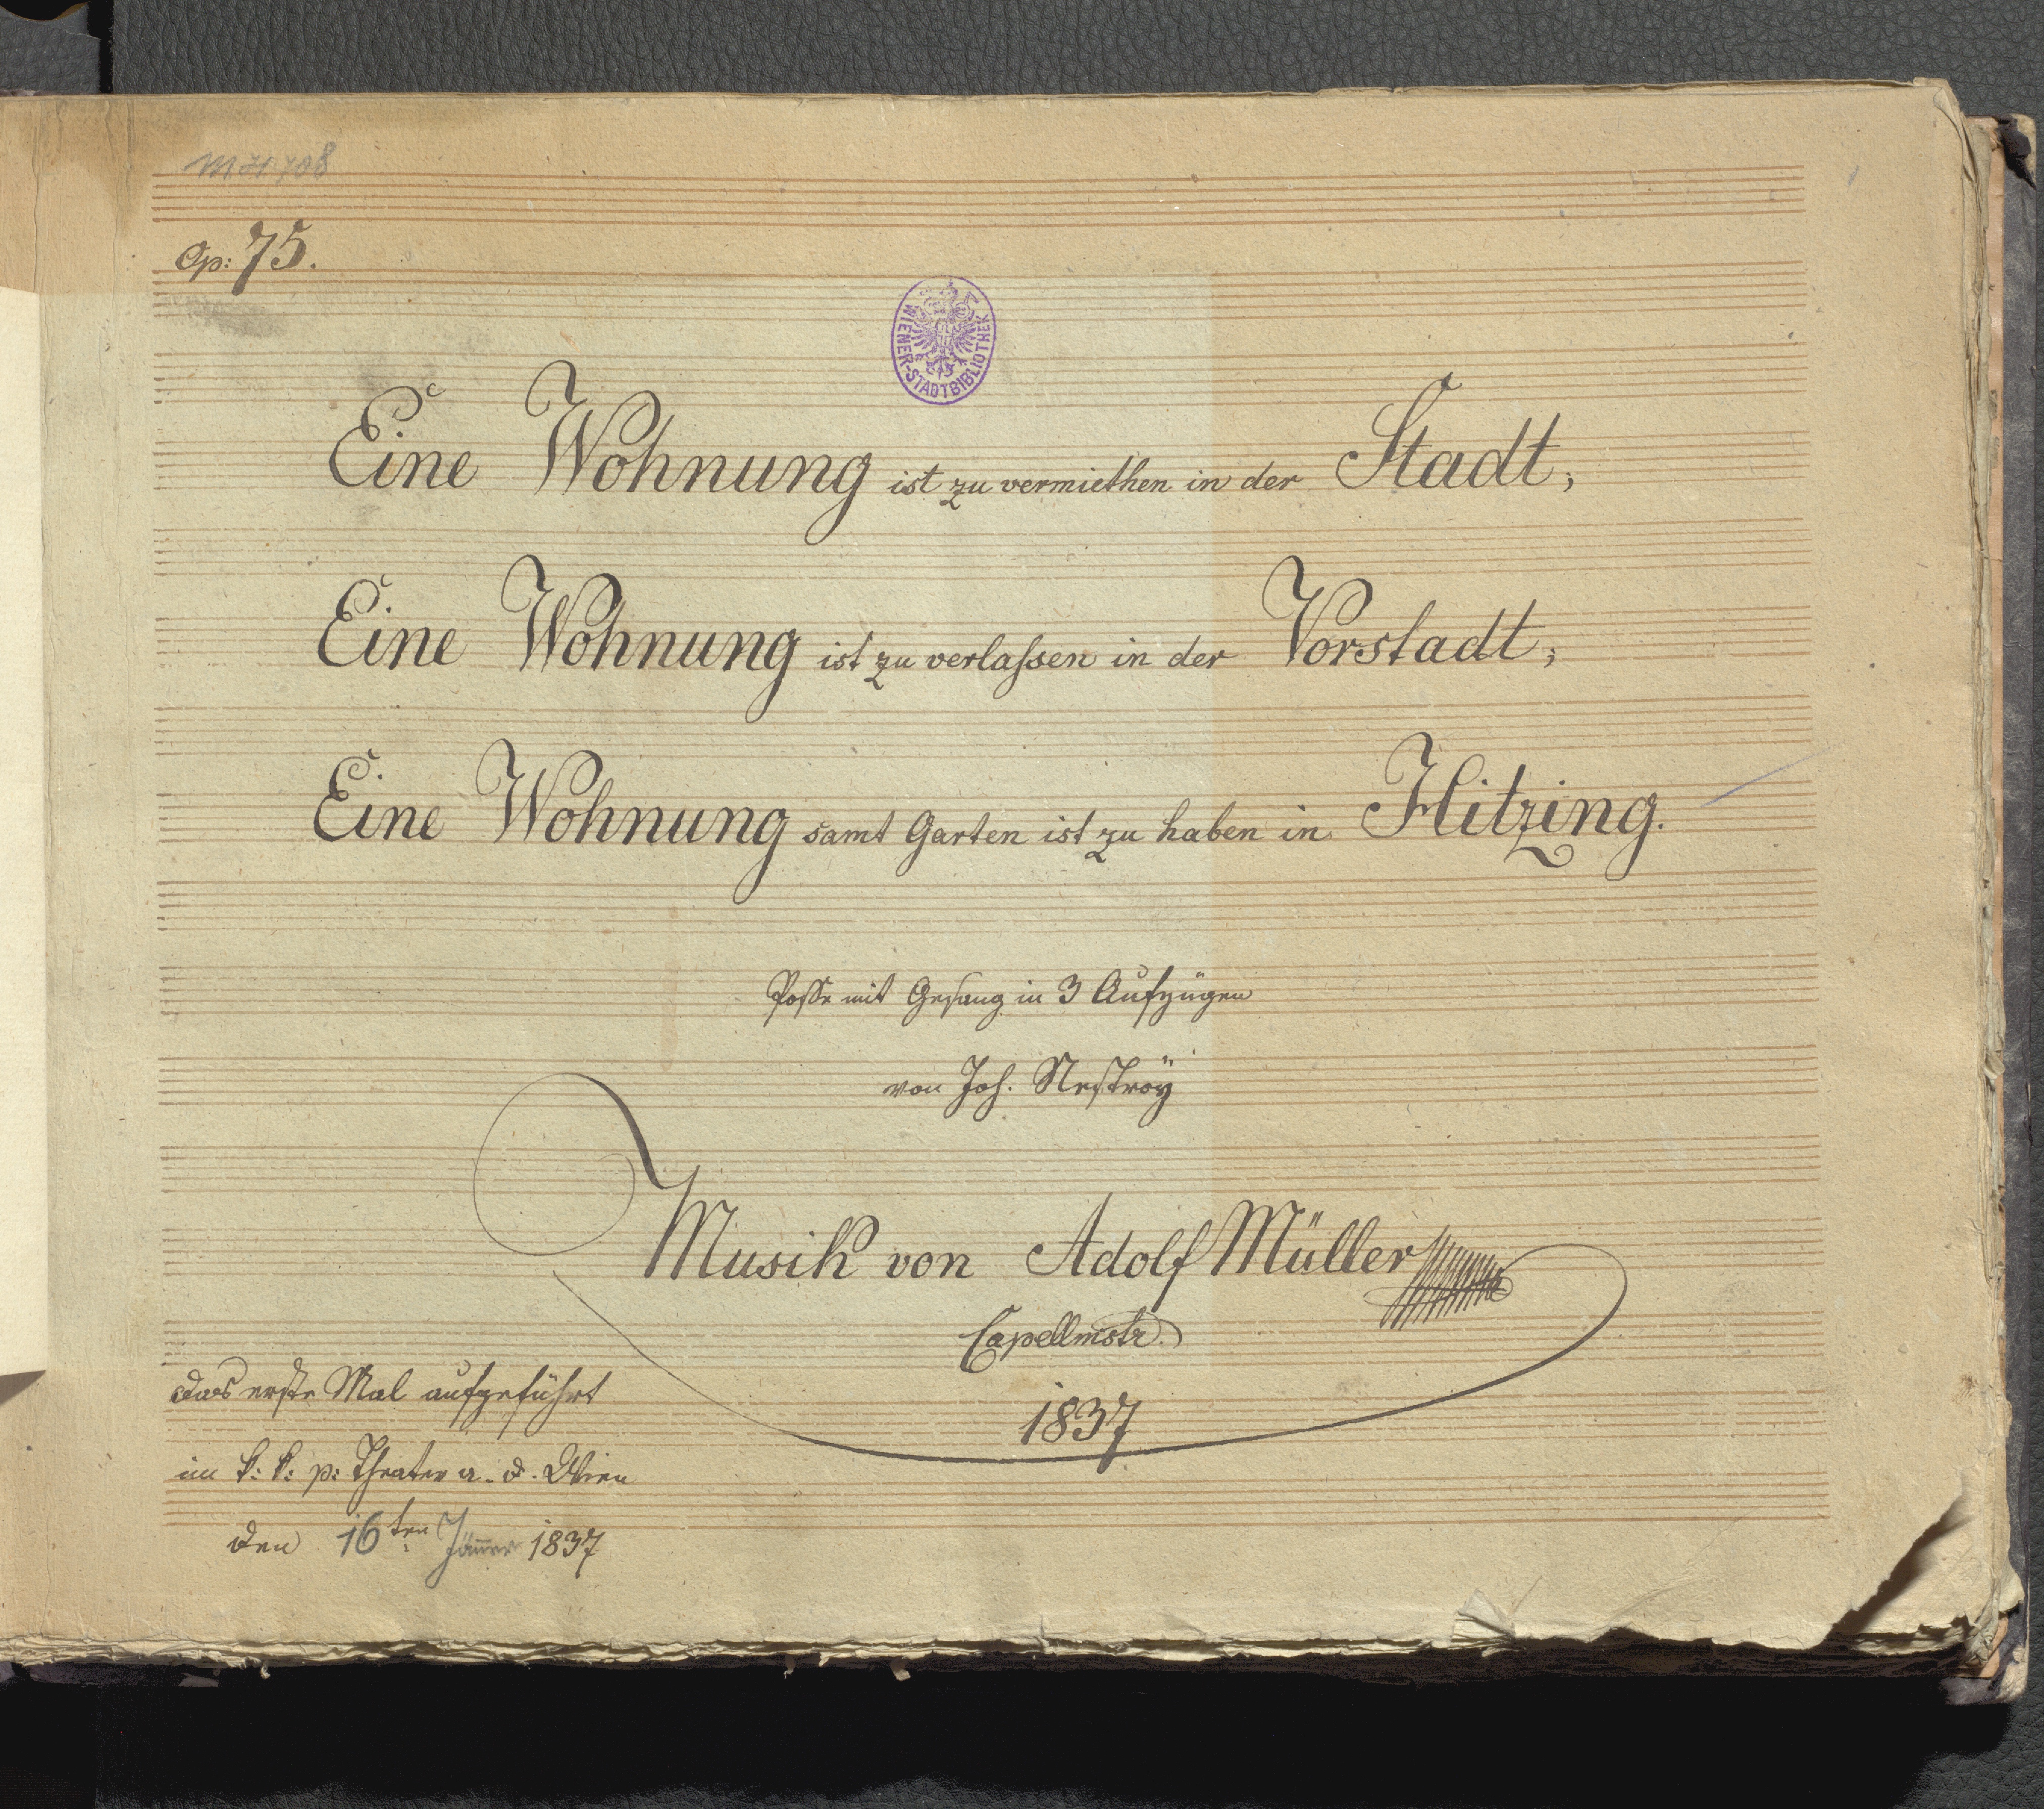 M.H. 708
Op: 75.
WIENER-STADTBIBLIOTHEK
Eine Wohnung ist zu vermiethen in der Stadt;
Eine Wohnung ist zu verlaſsen in der Vorstadt;
Eine Wohnung samt Garten ist zu haben in Hitzing.
Posse mit Gesang in 3 Aufzügen
von Joh. Nestroÿ
Musik von Adolf Müller
Capellmstr.
1837
das erste Mal aufgeführt
im k: k: p: Theater a. d. Wien
den 16ten Jänner 1837